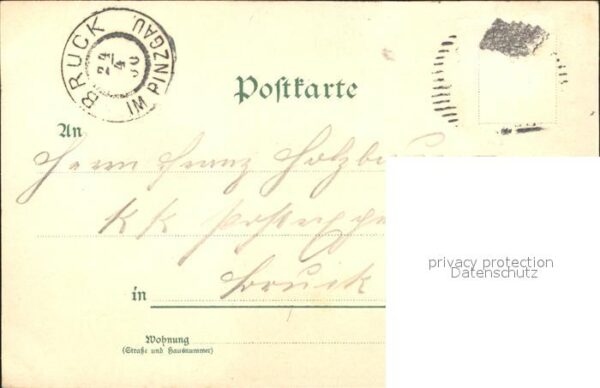 BRUCK IM PINZGAU
24/4 00
Postkarte
An
Herrn Franz
KK
privacy protection
Datenschutz
in Bruck
Wohnung
(Straße und Hausnummer)